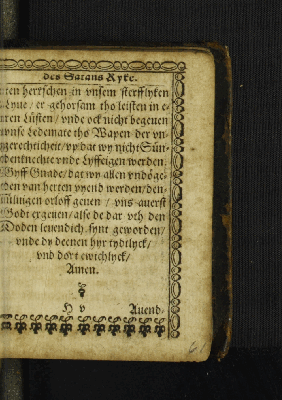 des Satans Ryke.
herrschen in vnsem sterfflyken
Lyue / er gehorsam tho leisten in e-
ren Lüsten / vnde ock nicht begeuen
vnse Ledemate tho Wapen der vn-
gerechticheit / vp dat wy nicht Sün-
dentknechte vnde Lyffeigen werden.
Gyff Gnade / dat wy allen vndöge-
den van herten vyend werden / den-
sülnigen orloff geuen / vns auerst
Godt ergeuen / alse de dar vth den
Doden leuendich synt geworden /
vnde dy deenen hyr tydtlyck /
vnd dort ewichlyck /
Amen.
H v Auend-